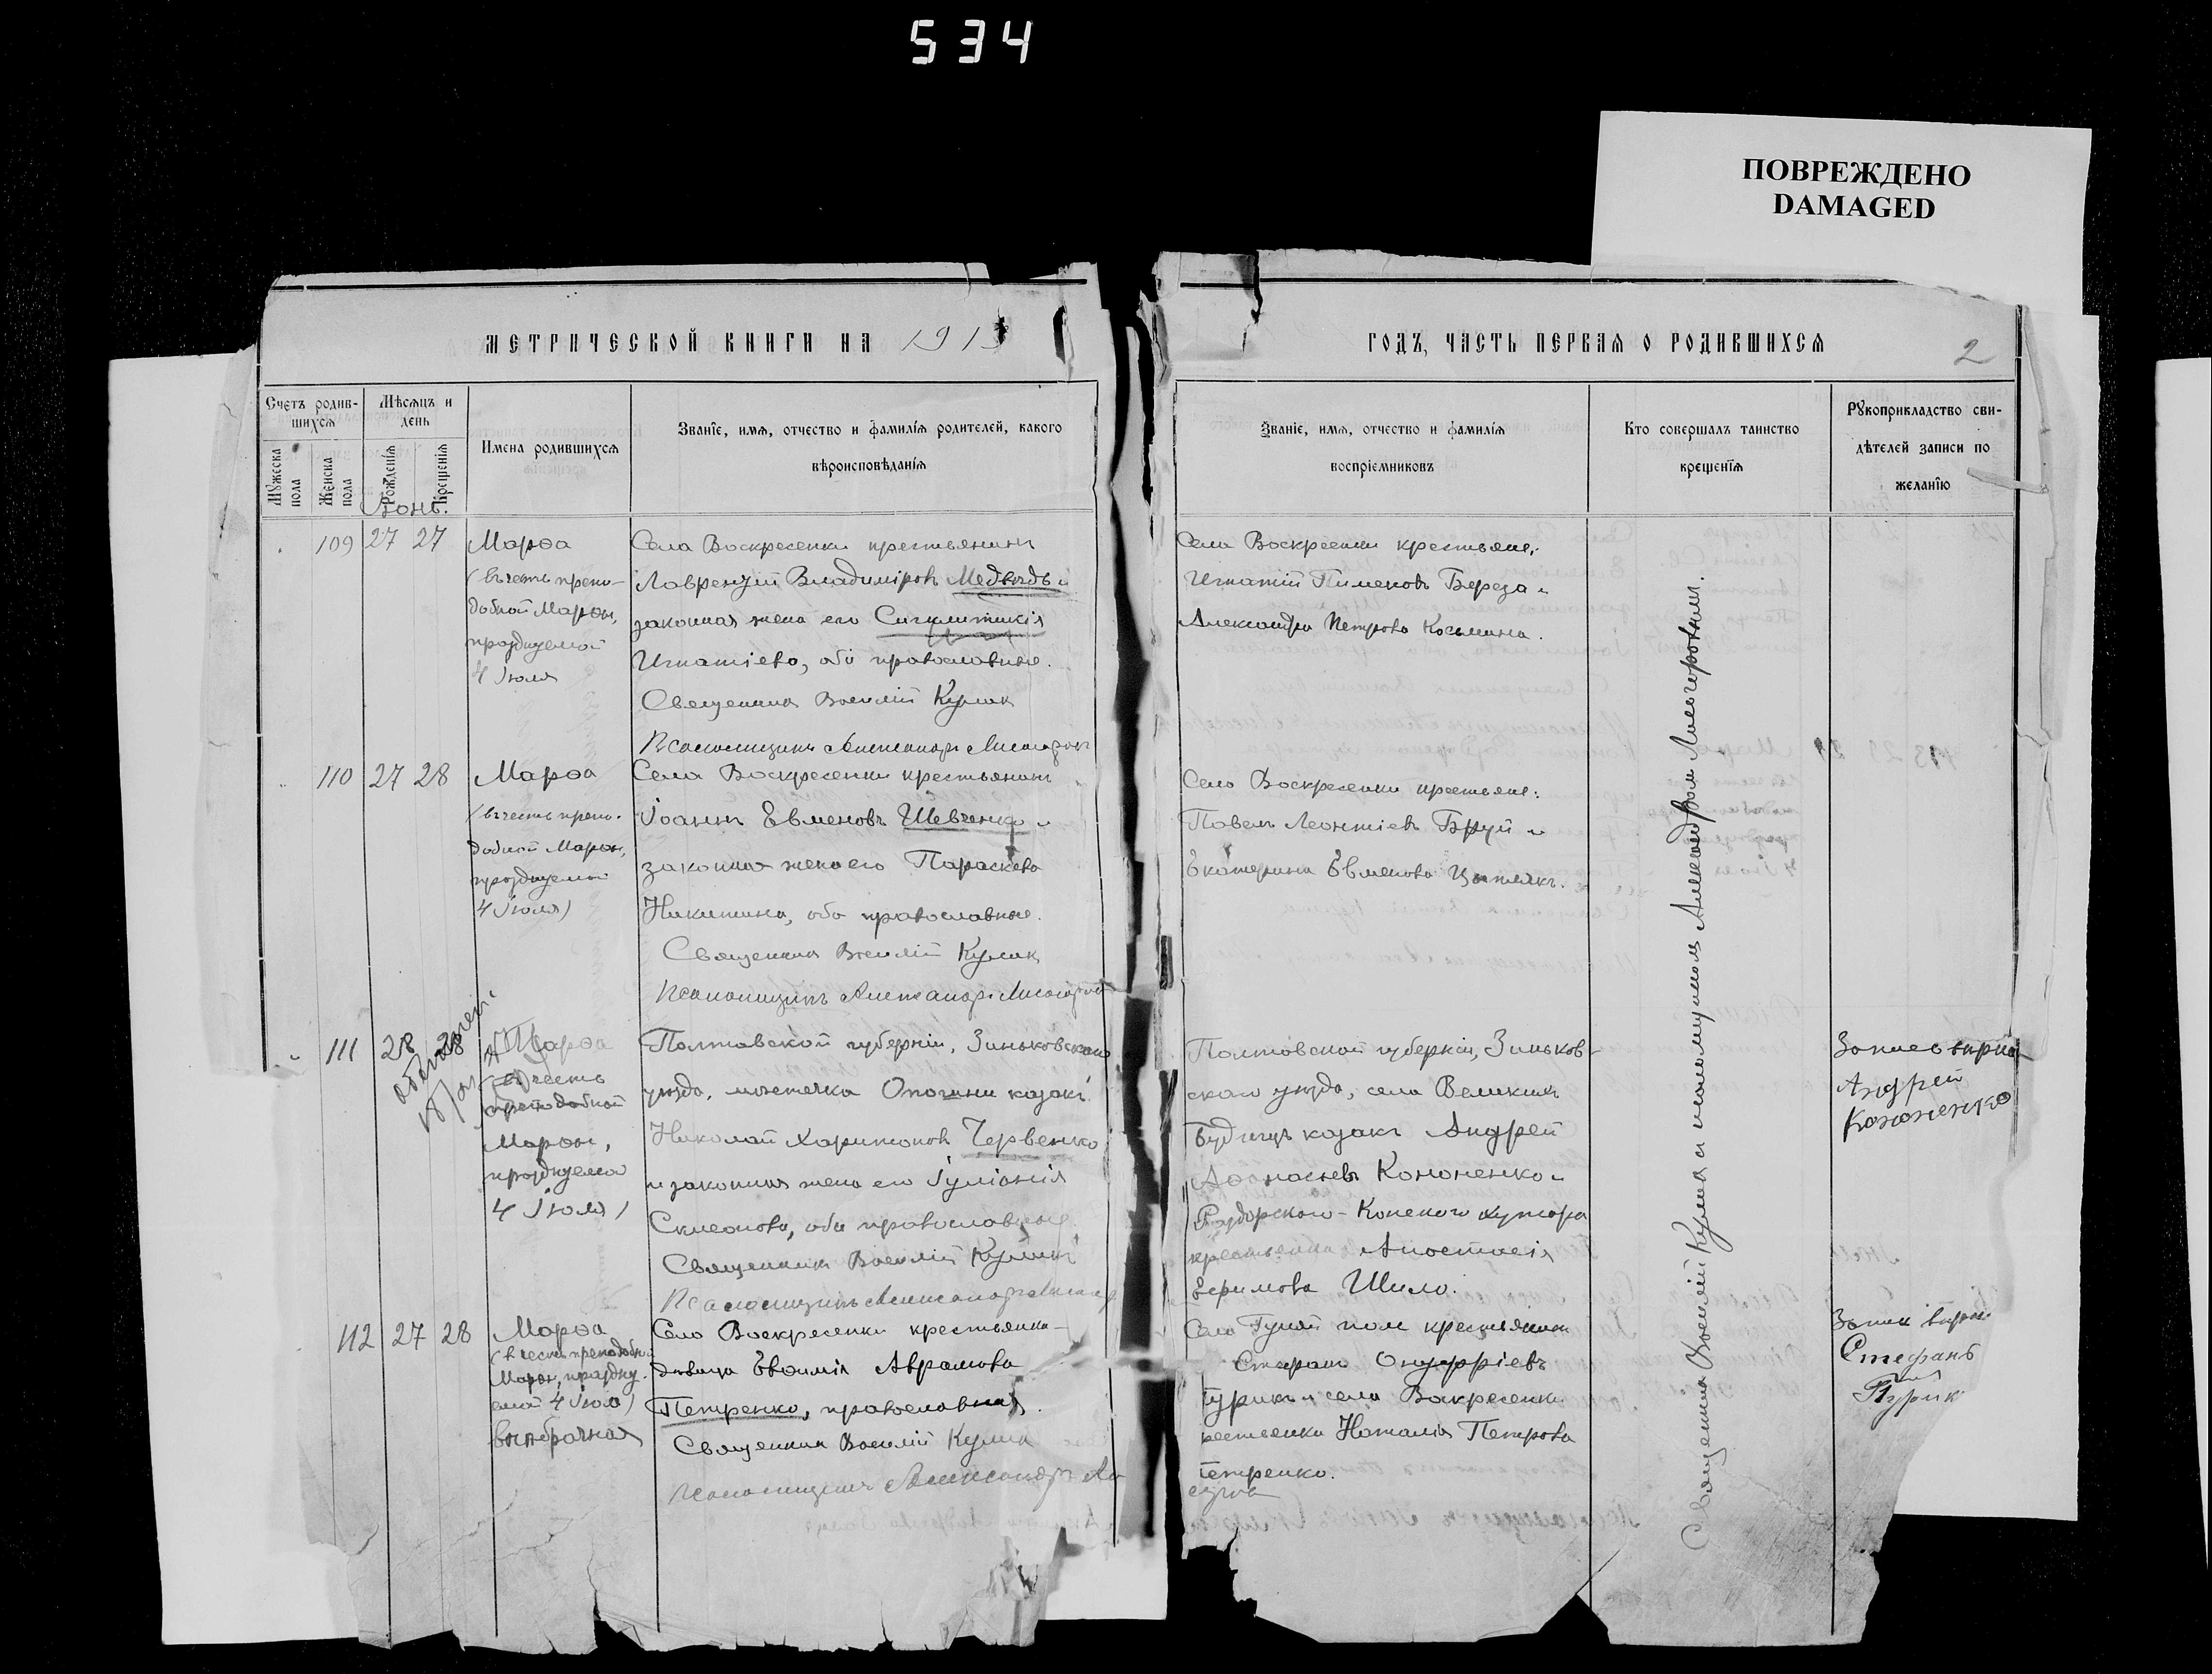 534
ПОВРЕЖДЕНО
DAMAGED
МЕТРИЧЕСКОЙ КНИГИ НА 1913
ГОДЪ, ЧАСТЬ ПЕРВАЯ О РОДИВШИХСЯ
2
Счетъ родив-
шихся
Мужеска
пола
Женска
пола
Мѣсяцъ и
день
Рожденія
Крещенія
Имена родившихся
Званіе, имя, отчество и фамилія родителей, какого
вѣроисповѣданія
Званіе, имя, отчество и фамилія
воспріемниковъ
Кто совершалъ таинство
крещенія
Рукоприкладство сви-
дѣтелей записи по
желанію
Іюнь.
109 27 27
Марѳа
(въ честь препо-
добной Марѳы,
празднуемой
4 Іюля
Села Воскресенки крестьянинъ
Лаврентій Владиміровъ Медвѣдь и
законная жена его Сигклитикія
Игнатіева, оба православные.
Священникъ Василій Кулик
Псаломщикъ Александръ
Села Воскресенки крестьяне:
Игнатій Пименовъ Береза и
Александра Петрова Косьмина.
110 27 28
Марѳа
(въ честь препо-
добной Марѳы,
празднуемой
4 Іюля)
Села Воскресенки крестьянинъ
Іоаннъ Евменовъ Шевченко и
законная жена его Параскева
Никитина, оба православные.
Священникъ Василій Кулик
Псаломщикъ Александръ
Села Воскресенки крестьяне:
Павелъ Леонтіевъ Бруй и
Екатерина Евменова
111 28 28
Марѳа
(въ честь
преподобной
Марѳы,
празднуемой
4 Іюля)
Полтавской губерніи, Зиньковскаго
уѣзда, мѣстечка Опошни козакъ
Николай Харитоновъ Червенко
и законная жена его Іуліанія
Симеонова, оба православные.
Священникъ Василій Кулик
Псаломщикъ Александръ
Полтавской губерніи, Зиньков-
скаго уѣзда, села Великихъ
Будищъ козакъ Андрей
Аѳанасіевъ Кононенко и
хутора
крестьянка Анастасія
Ефимова Шило.
Андрей
Кононенко
112 27 28
Марѳа
(въ честь преподобн.
Марѳы, праздну-
емой 4 Іюля)
внѣбрачная
Села Воскресенки крестьянка-
дѣвица Евѳимія Аврамова
Петренко, православная.
Священникъ Василій Кулик
Псаломщикъ Александръ
Села Гуляй поле крестьянинъ
Стефанъ Онуфріевъ
Турикъ и села Воскресенки
Наталія Петрова
Петренко.
Стефанъ
Священникъ Василій Куликъ и псаломщикомъ Александромъ Лисогоровымъ.